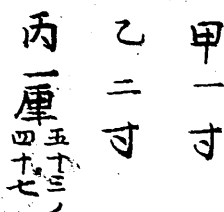 甲一寸
乙二寸
丙一厘五十三ノ
四十七